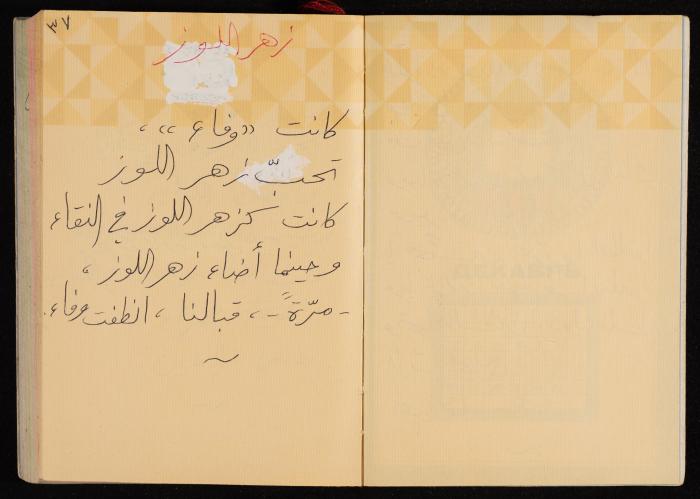 ٣٧
زهر اللوز
كانت «وفاء»،
تحبّ زهر اللوز
كانت كزهر اللوز في النقاء
وحينما أضاء زهر اللوز،
- مرّةً -، قبالنا، انطفت وفاء.
~